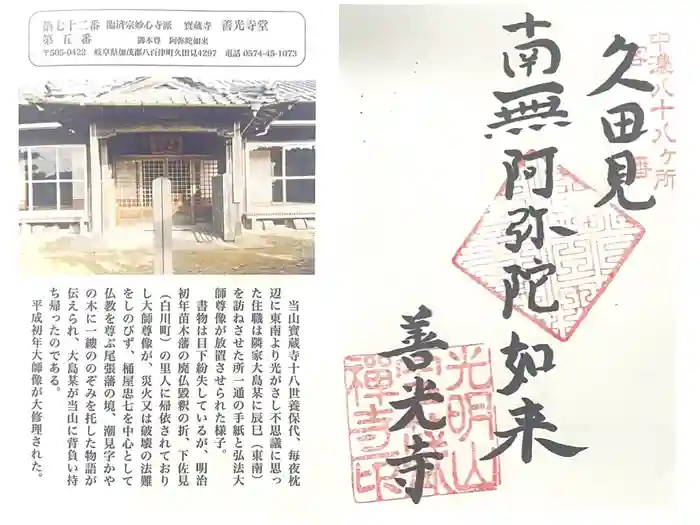 第七十二番 臨済宗妙心寺派 寶蔵寺 善光寺堂
第五番 御本尊 阿弥陀如来
〒505-0422 岐阜県加茂郡八百津町久田見4297 電話 0574-45-1073
当山寶蔵寺十八世養保代、毎夜枕
辺に東南より光がさし不思議に思っ
た住職は隣家大島某に辰巳（東南）
を訪ねさせた所一通の手紙と弘法大
師尊像が放置させられた様子。
書物は目下紛失しているが、明治
初年苗木藩の廃仏毀釈の折、下佐見
（白川町）の里人に帰依されており
し大師尊像が、災火又は破壊の法難
をしのびず、桶屋忠七を中心として
仏教を尊ぶ尾張藩の境、潮見字かや
の木に一縷ののぞみを托した物語が
伝えられ、大島某が当山に背負い持
ち帰ったのである。
平成初年大師像が大修理された。
中濃八十八ヶ所
久田見
南無阿弥陀如来
善光寺
光明山
禅寺印